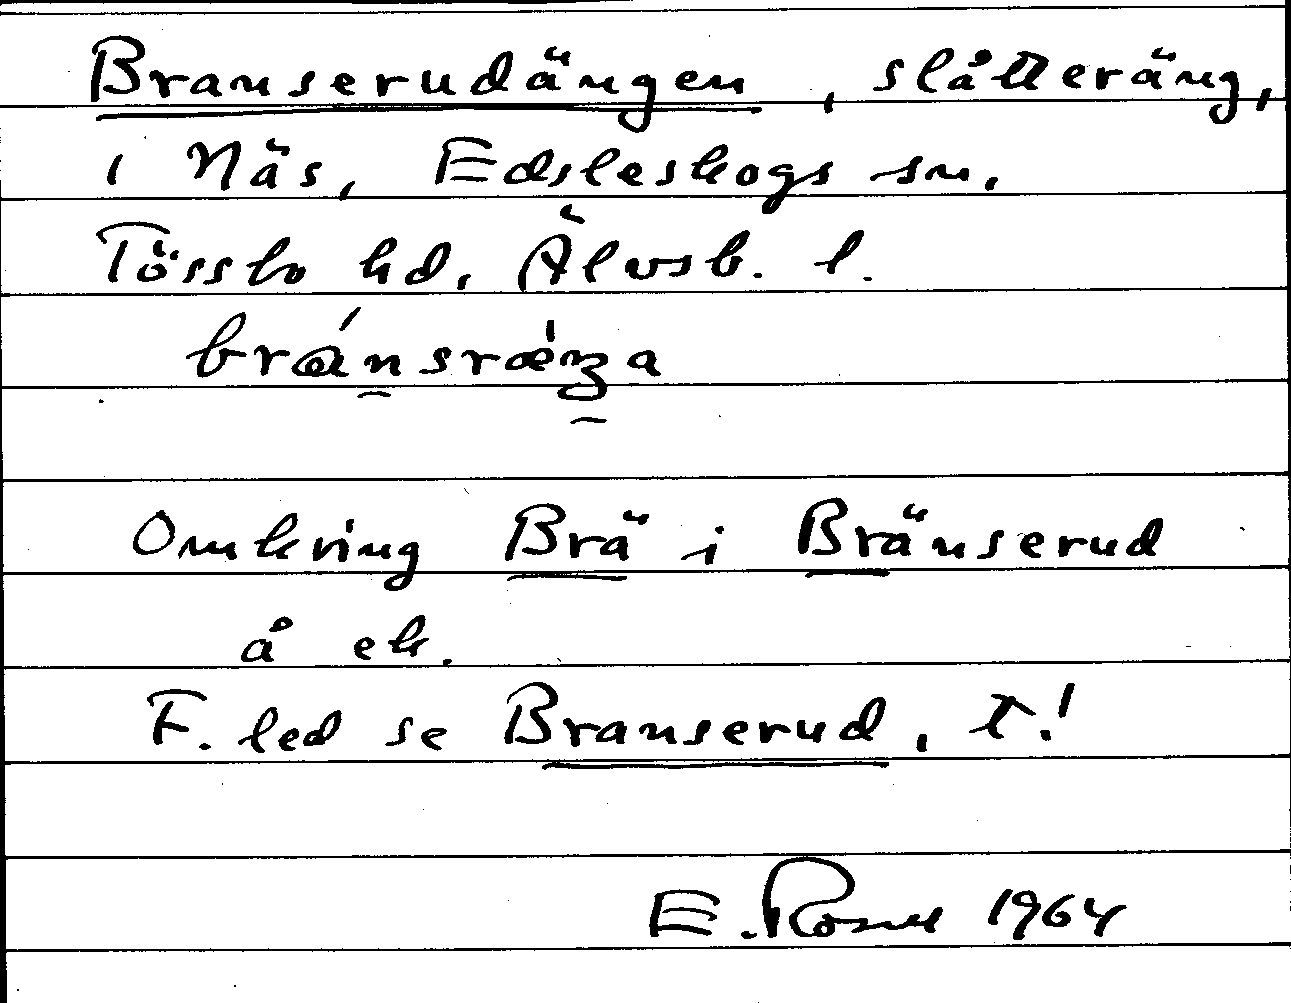 Branserudängen, slåtteräng,
i Näs, Edsleskogs sn.
Tössbo hd, Älvsb. l.
Omkring Brä i Bränserud
å ek.
F. led se Branserud, t.!
E. 1964